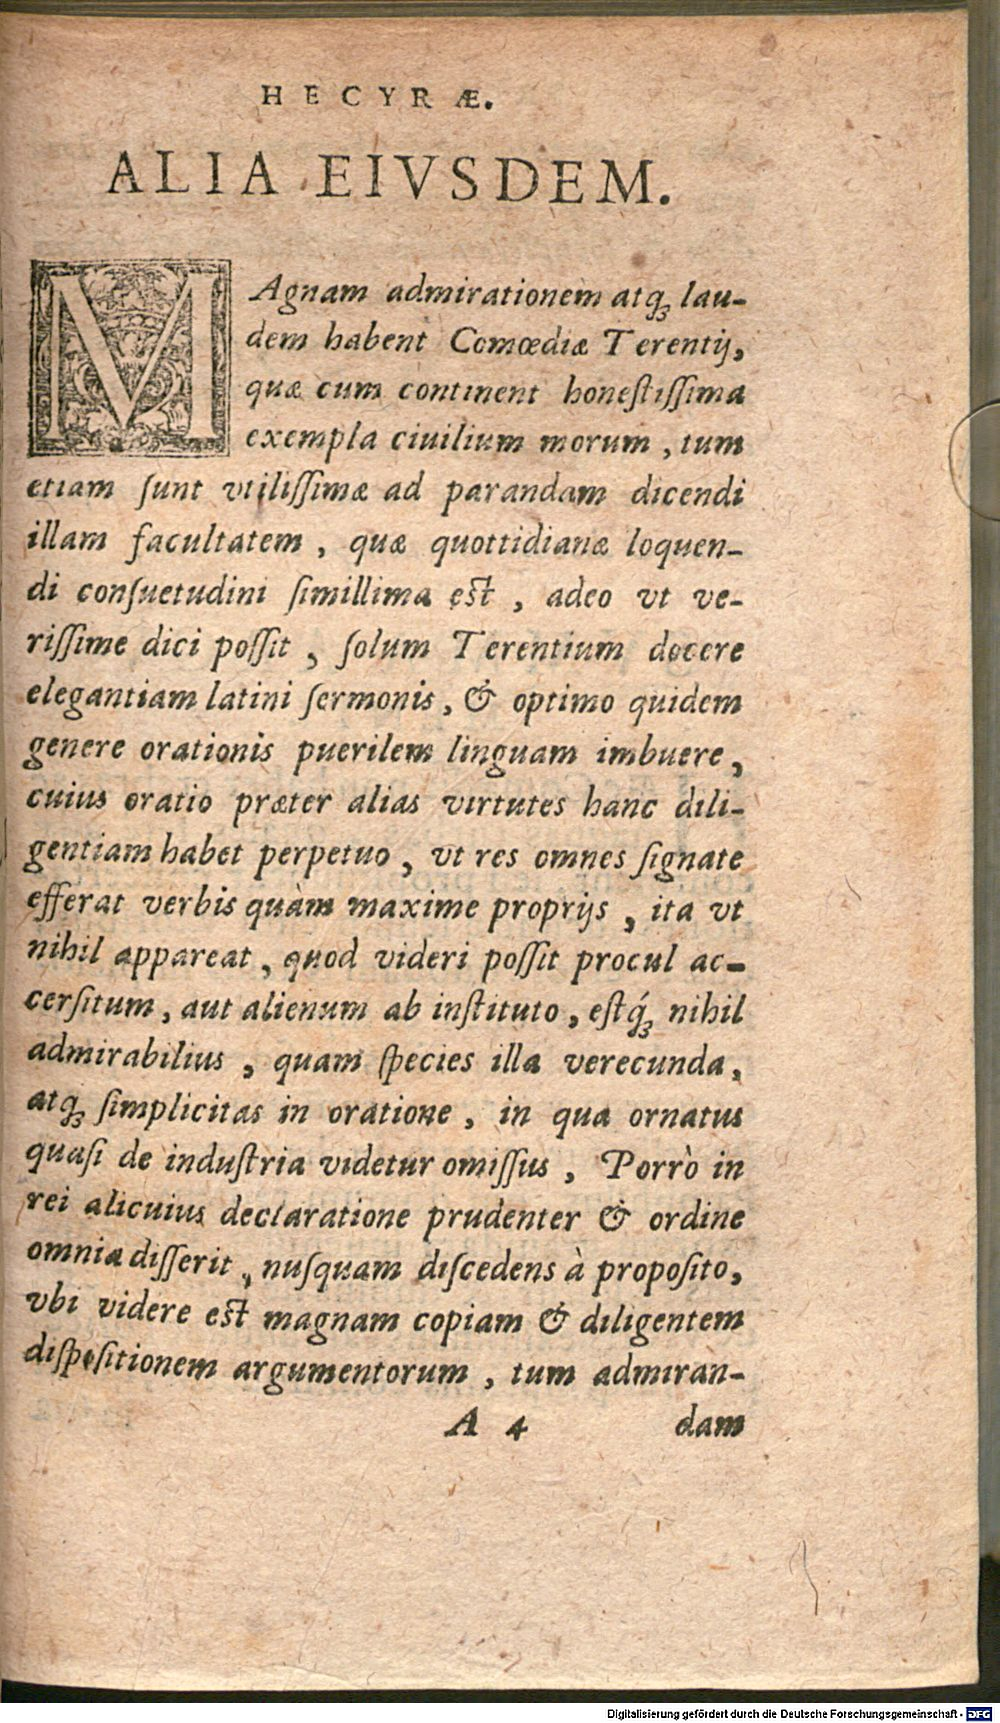 HECYRÆ.
ALIA EIVSDEM.
MAgnam admirationem atq́ꝫ lau-
dem habent Comœdiæ Terentij,
quæ cum continent honestiſſima
exempla ciuilium morum, tum
etiam ſunt vtiliſſimæ ad parandam dicendi
illam facultatem, quæ quottidianæ loquen-
di conſuetudini ſimillima est, adeo vt ve-
riſſime dici poſſit, ſolum Terentium docere
elegantiam latini ſermonis, & optimo quidem
genere orationis puerilem linguam imbuere,
cuius oratio præter alias virtutes hanc dili-
gentiam habet perpetuo, vt res omnes ſignate
efferat verbis quàm maxime proprijs, ita vt
nihil appareat, quod videri poſſit procul ac-
cerſitum, aut alienum ab inſtituto, eſtq́ꝫ nihil
admirabilius, quam ſpecies illa verecunda,
atqꝫ ſimplicitas in oratione, in qua ornatus
quaſi de induſtria videtur omiſſus, Porrò in
rei alicuius declaratione prudenter & ordine
omnia diſſerit, nuſquam diſcedens à propoſito,
vbi videre eſt magnam copiam & diligentem
diſpoſitionem argumentorum, tum admiran-
A 4 dam
Digitalisierung gefördert durch die Deutsche Forschungsgemeinschaft - DFG